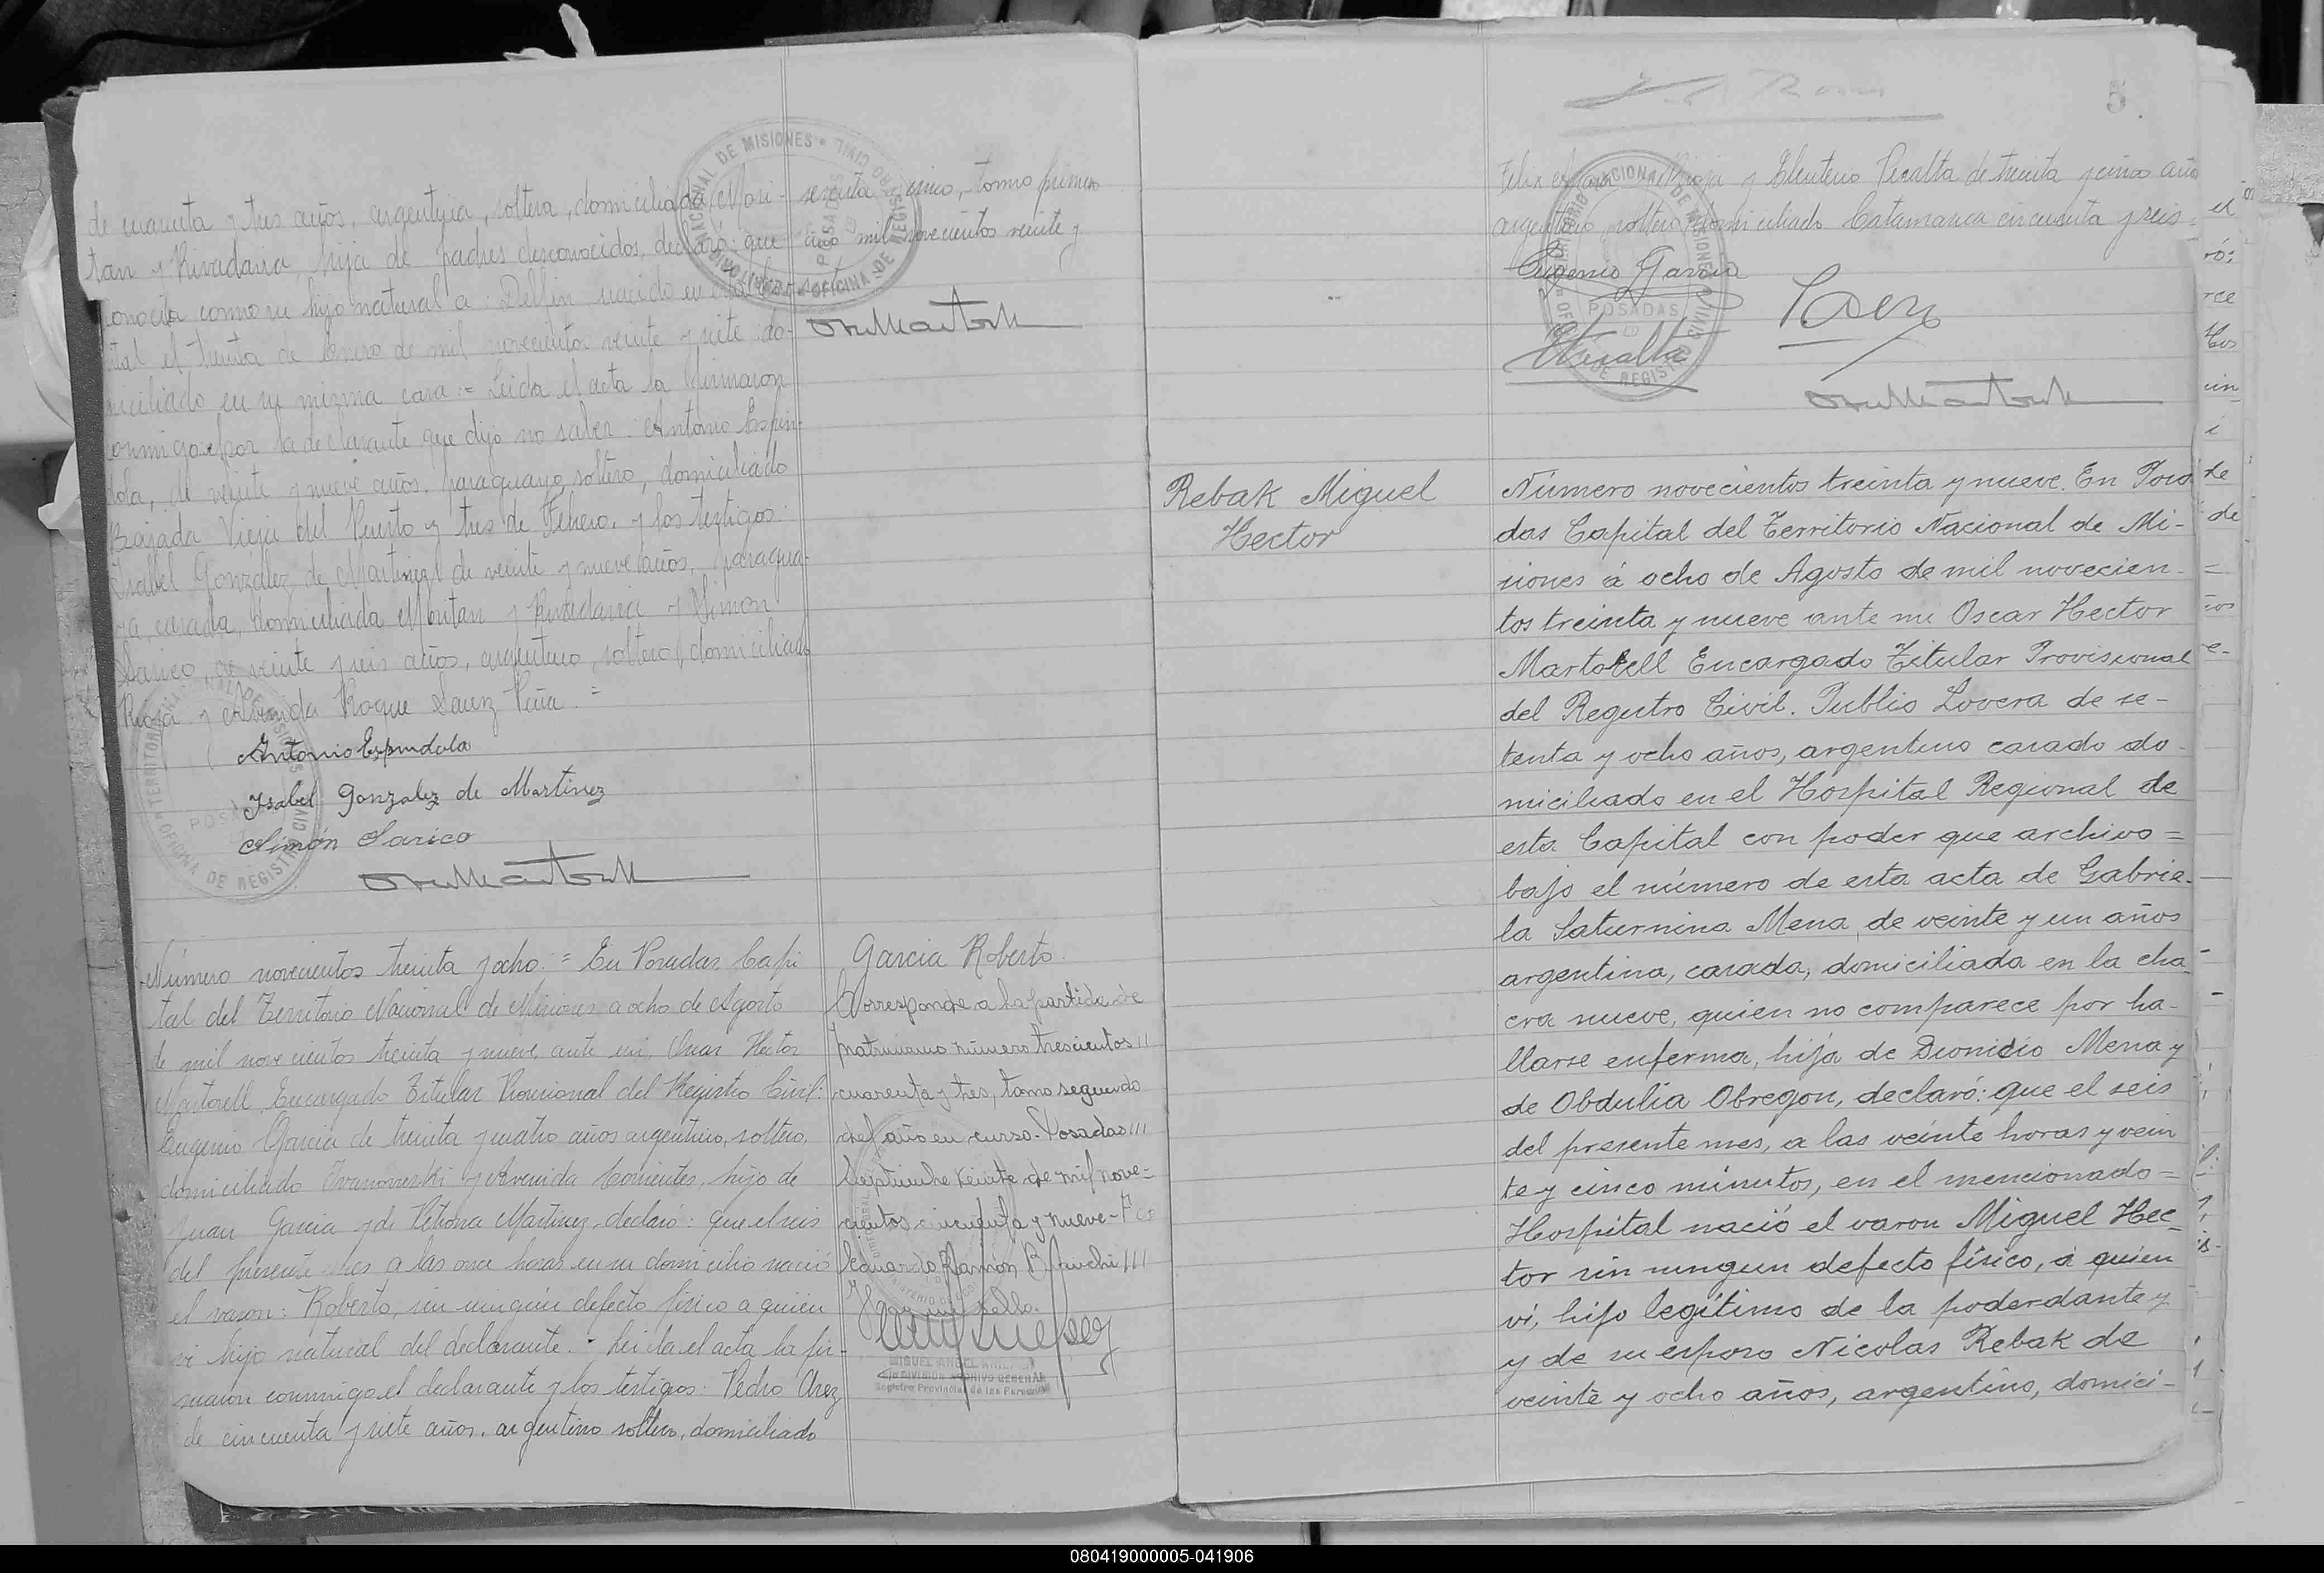 de cuarenta y tres años, argentina, soltera, domiciliada Mori-
tan y Rivadavia, hija de padres desconocidos, declaró: que
como su hijo natural a: Delfin nacido en esta Ca-
pital el treinta de Enero de mil novecientos veinte y siete do-
miciliado en su misma casa:= Leida el acta la firmaron
conmigo por la declarante que dijo no saber: Antonio Espin-
dola, de veinte y nueve años, paraguayo, soltero, domiciliado
Bajada Vieja del Puerto y tres de Febrero, y los testigos:
Isabel Gonzalez de Martinez de veinte y nueve años, paragua-
ya, casada, domiciliada Moritan y Rivadavia y Simón
Sarico, de veinte y seis años, argentino, soltero, domiciliado
Rioja y Avenida Roque Saenz Peña.=
Antonio Espindola
Isabel Gonzalez de Martinez
Simón Sarico
TERRITORIO NACIONAL DE MISIONES
POSADAS
OFICINA DE REGISTRO CIVIL
sesenta y cinco, tomo primero
año mil novecientos veinte y
siete
Número novecientos treinta y ocho.= En Posadas, Capi
tal del Territorio Nacional de Misiones a ocho de Agosto
de mil novecientos treinta y nueve, ante mi, Oscar Hector
Martorell, Encargado Titular Provisional del Registro Civil:
Eugenio Garcia de treinta y cuatro años argentino, soltero,
domiciliado Ivanowski y Avenida Corrientes, hijo de
Juan Garcia y de Petrona Martinez, declaró: que el seis
del presente mes a las once horas en su domicilio nació
el varon: Roberto, sin ningún defecto fisico a quien
vi hijo natural del declarante.- Leida el acta la fir-
maron conmigo el declarante y los testigos: Pedro Arez
de cincuenta y siete años, argentino soltero, domiciliado
Garcia Roberto.
Corresponde a la partida de
matrimonio número trescientos //
cuarenta y tres, tomo segundo
del año en curso. Posadas ///
Septiembre veinte de mil nove=
cientos cincuenta y nueve-
Eduardo Ramón B
MIGUEL ANGEL
DIVISION ARCHIVO GENERAL
Registro Provincial de las Personas
5
Felix Rioja y Eleuterio Peralta de treinta y cinco años
argentino, soltero domiciliado Catamarca cincuenta y seis=
Eugenio Garcia
Peralta
POSADAS
Rebak Miguel
Hector
Número novecientos treinta y nueve. En Posa
das Capital del Territorio Nacional de Mi-
siones á ocho de Agosto de mil novecien-
tos treinta y nueve ante mi Oscar Hector
Martorell Encargado Titular Provisional
del Registro Civil. Publio Lovera de se-
tenta y ocho años, argentino casado do-
miciliado en el Hospital Regional de
esta Capital con poder que archivo=
bajo el número de esta acta de Gabrie-
la Saturnina Mena, de veinte y un años
argentina, casada, domiciliada en la cha
cra nueve, quien no comparece por ha-
llarse enferma, hija de Dionicio Mena y
de Obdulia Obregon, declaró: que el seis
del presente mes, a las veinte horas y vein
te y cinco minutos, en el mencionado=
Hospital nació el varon Miguel Hec-
tor sin ningun defecto físico, á quien
ví, hijo legítimo de la poderdante y
y de su esposo Nicolas Rebak de
veinte y ocho años, argentino, domici-
080419000005-041906